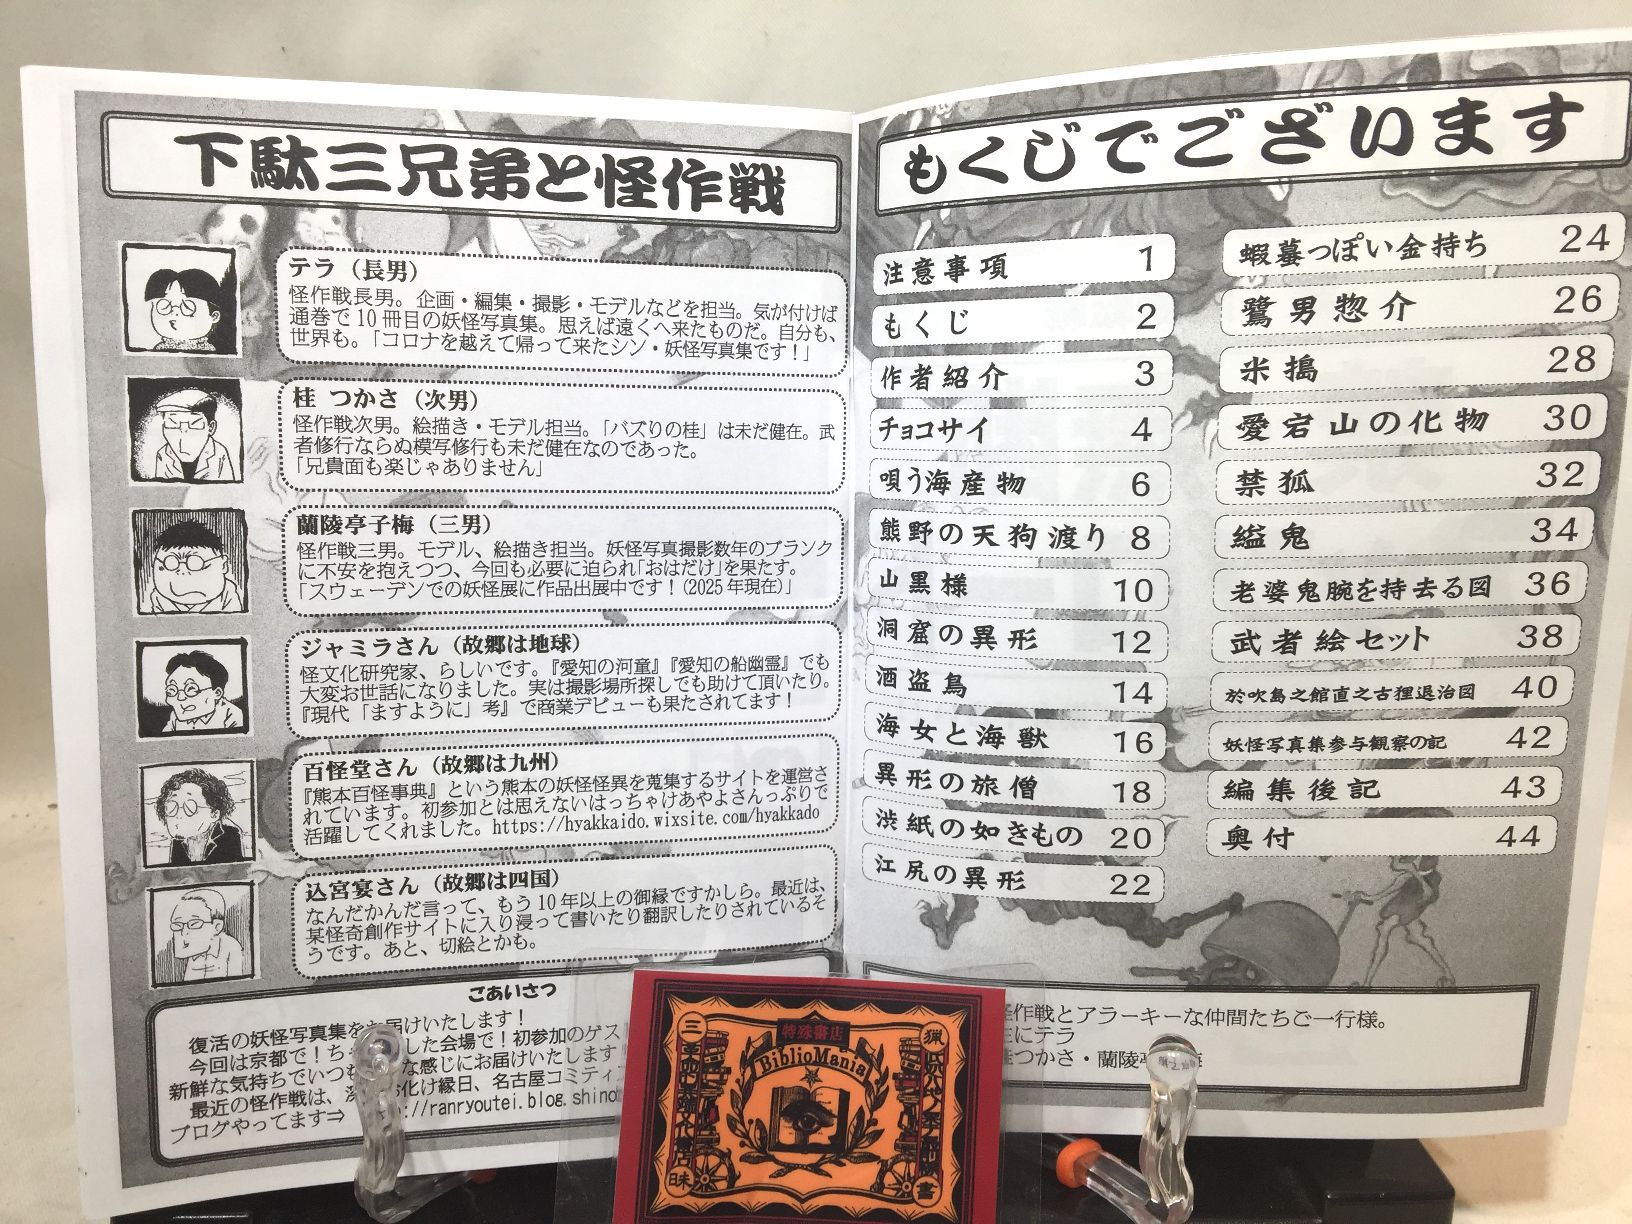 下駄三兄弟と怪作戦
テラ（長男）
怪作戦長男。企画・編集・撮影・モデルなどを担当。気が付けば
通巻で10冊目の妖怪写真集。思えば遠くへ来たものだ。自分も、
世界も。「コロナを越えて帰って来たシン・妖怪写真集です！」
桂 つかさ（次男）
怪作戦次男。絵描き・モデル担当。「バズりの桂」は未だ健在。武
者修行ならぬ模写修行も未だ健在なのであった。
「兄貴面も楽じゃありません」
蘭陵亭子梅（三男）
怪作戦三男。モデル、絵描き担当。妖怪写真撮影数年のブランク
に不安を抱えつつ、今回も必要に迫られ「おはだけ」を果たす。
「スウェーデンでの妖怪展に作品出展中です！（2025年現在）」
ジャミラさん（故郷は地球）
怪文化研究家、らしいです。『愛知の河童』『愛知の船幽霊』でも
大変お世話になりました。実は撮影場所探しでも助けて頂いたり。
『現代「ますように」考』で商業デビューも果たされてます！
百怪堂さん（故郷は九州）
『熊本百怪事典』という熊本の妖怪怪異を蒐集するサイトを運営さ
れています。初参加とは思えないはっちゃけあやよさんっぷりで
活躍してくれました。https://hyakkaido.wixsite.com/hyakkado
込宮宴さん（故郷は四国）
なんだかんだ言って、もう10年以上の御縁ですかしら。最近は、
某怪奇創作サイトに入り浸って書いたり翻訳したりされているそ
うです。あと、切絵とかも。
ごあいさつ
復活の妖怪写真集をお届けいたします！
今回は京都で！ち した会場で！初参加のゲス
新鮮な気持ちでいつも な感じにお届けいたします
最近の怪作戦は、 お化け縁日、名古屋コミティ
ブログやってます⇒ ://ranryoutei.blog.shino
もくじでございます
注意事項 1
もくじ 2
作者紹介 3
チョコサイ 4
唄う海産物 6
熊野の天狗渡り 8
山黒様 10
洞窟の異形 12
酒盗鳥 14
海女と海獣 16
異形の旅僧 18
渋紙の如きもの 20
江尻の異形 22
蝦蟇っぽい金持ち 24
鷺男惣介 26
米搗 28
愛宕山の化物 30
禁狐 32
縊鬼 34
老婆鬼腕を持去る図 36
武者絵セット 38
於吹島之館直之古狸退治図 40
妖怪写真集参与観察の記 42
編集後記 43
奥付 44
怪作戦とアラーキーな仲間たちご一行様。
主にテラ
桂つかさ・蘭陵亭
特殊書店
BiblioMania